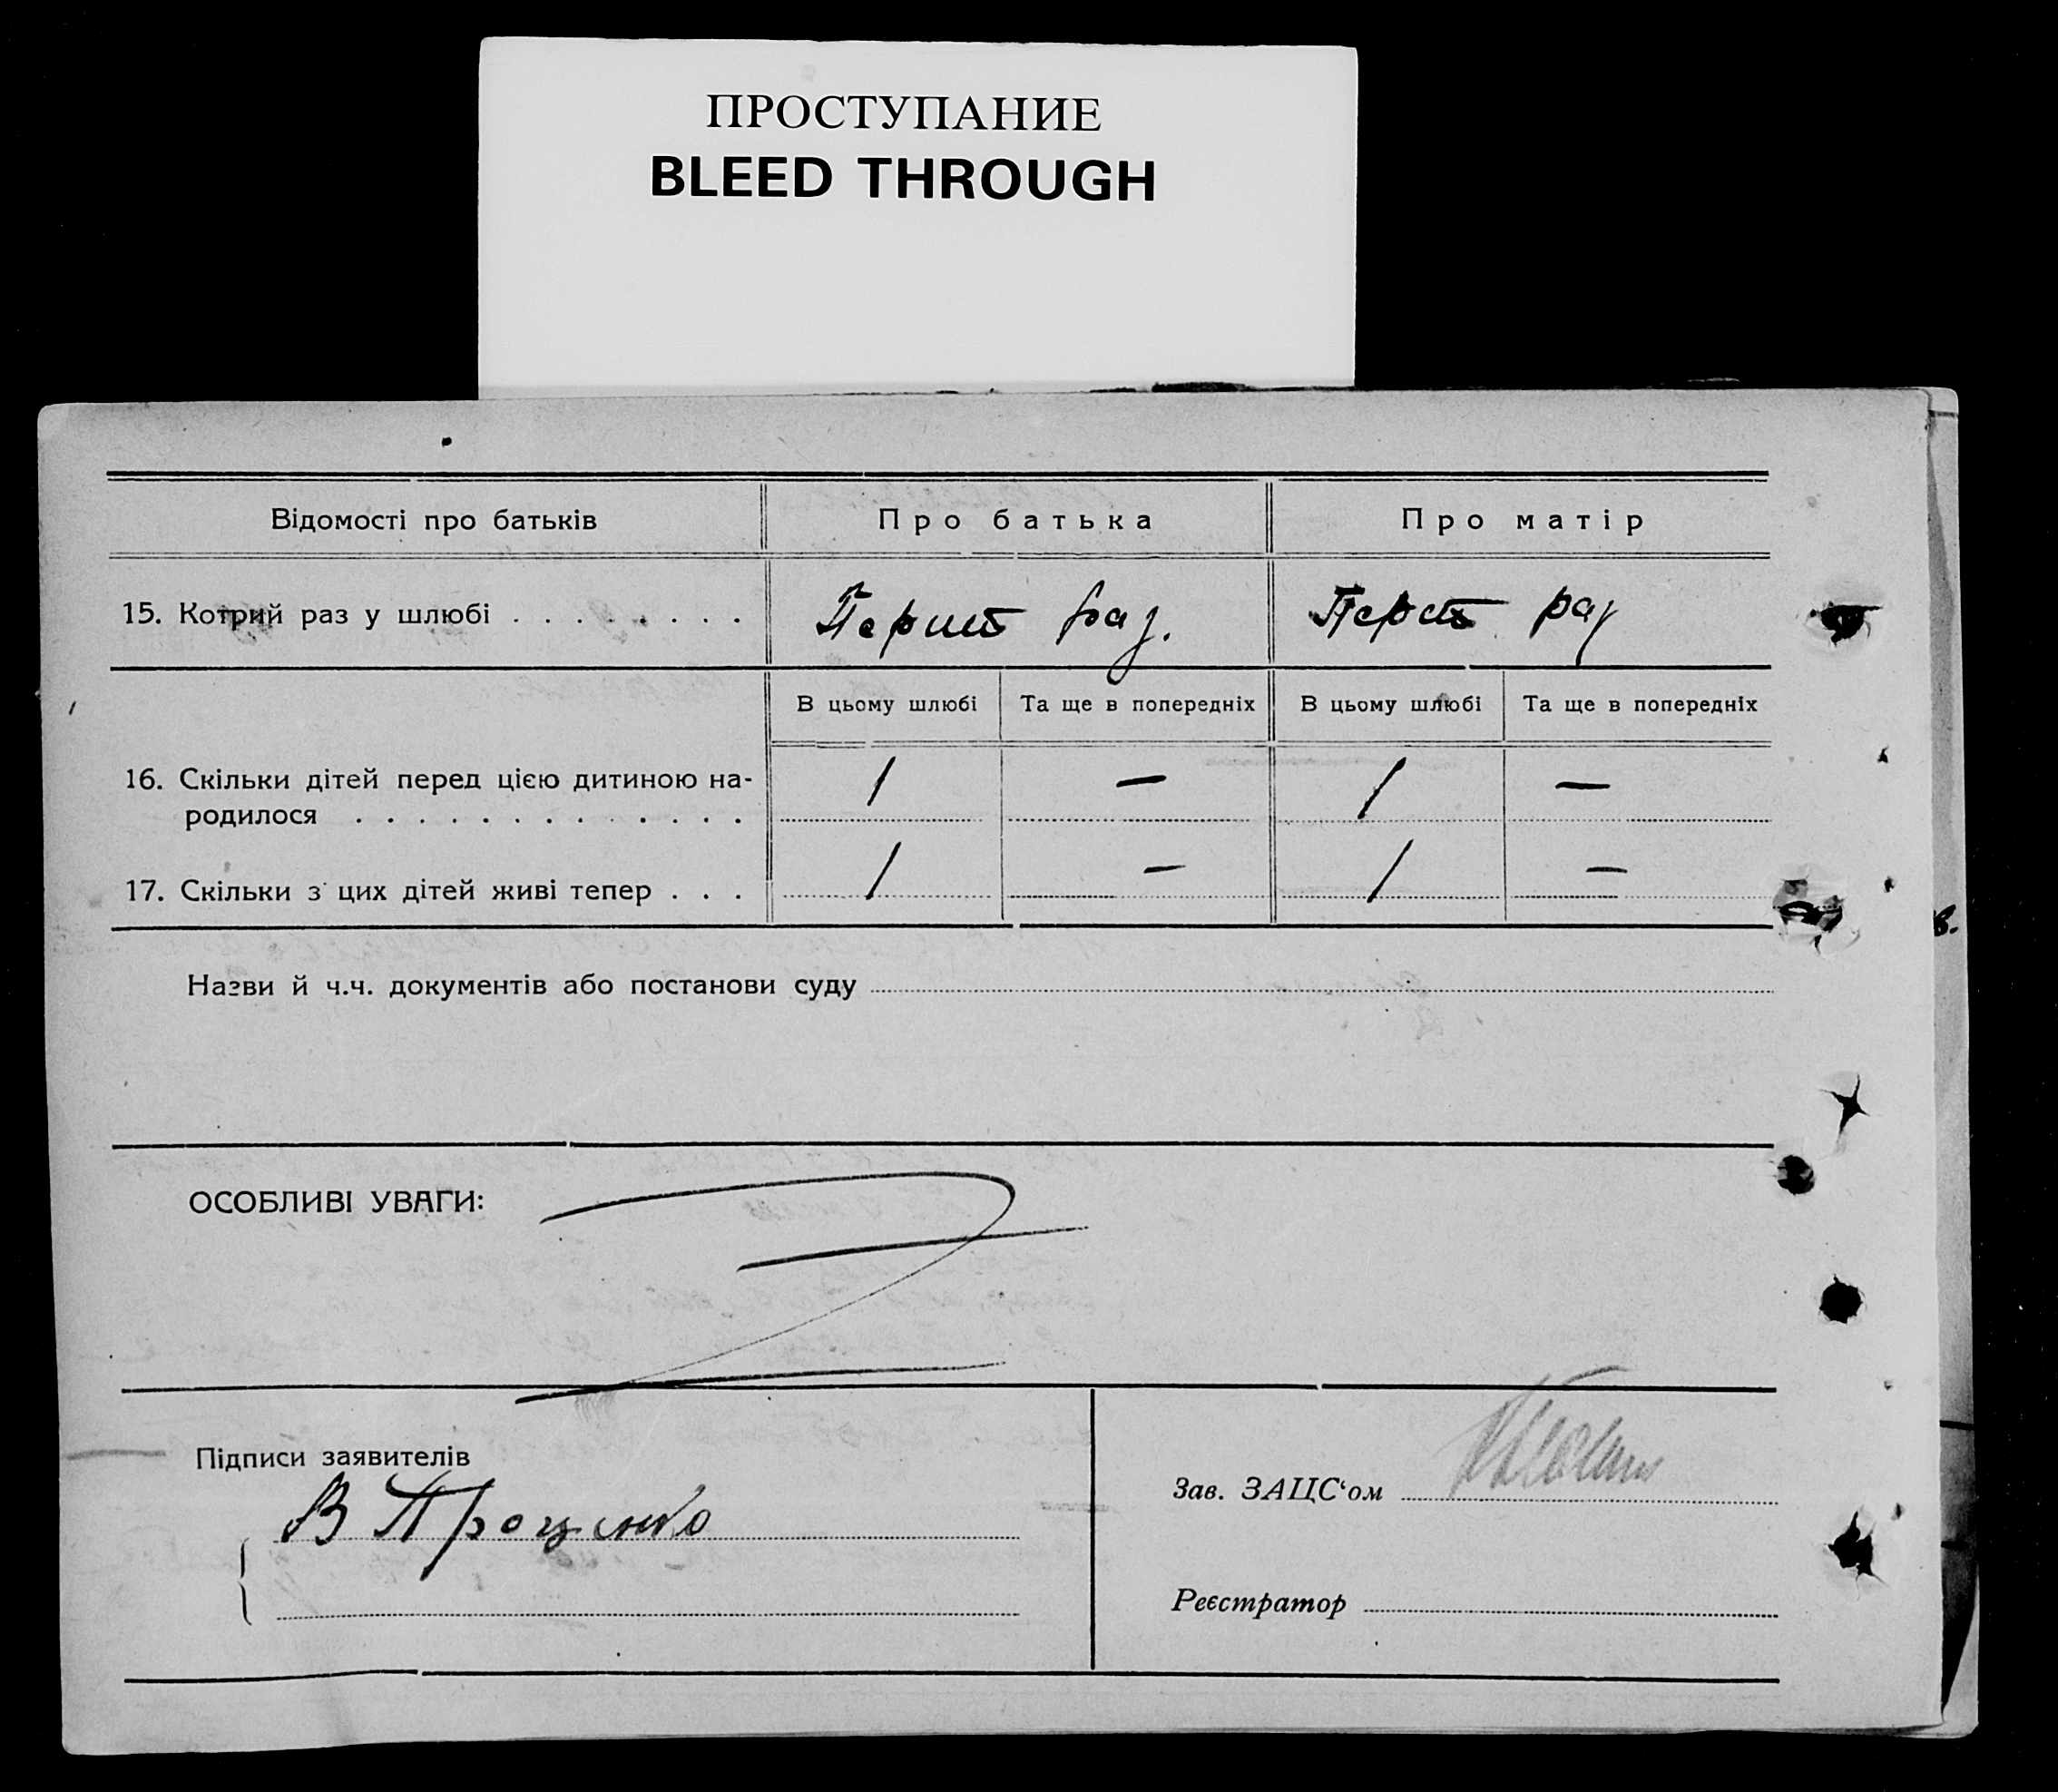 ПРОСТУПАНИЕ
BLEED THROUGH
Відомості про батьків Про батька Про матір
15. Котрий раз у шлюбі . . . . . . . . раз. раз
В цьому шлюбі Та ще в попередніх В цьому шлюбі Та ще в попередніх
16. Скільки дітей перед цією дитиною на- 1 — 1 —
родилося . . . . . . . . . . . . .
17. Скільки з цих дітей живі тепер . . . 1 — 1 —
Назви й ч.ч. документів або постанови суду
ОСОБЛИВІ УВАГИ:
Підписи заявителів
В Проценко
Зав. ЗАЦС‘ом
Реєстратор